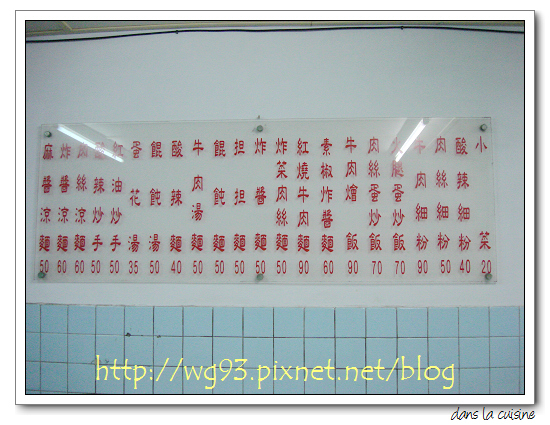 麻醬涼麵 50
炸醬涼麵 60
雞絲涼麵 60
酸辣炒手 50
紅油炒手 50
蛋花湯 35
餛飩湯 50
酸辣麵 40
牛肉湯麵 50
餛飩麵 50
担担麵 50
炸醬麵 50
炸菜肉絲麵 50
紅燒牛肉麵 90
素椒炸醬麵 60
牛肉燴飯 90
肉絲蛋炒飯 70
火腿蛋炒飯 70
牛肉細粉 90
肉絲細粉 50
酸辣細粉 40
小菜 20
http://wg93.pixnet.net/blog
dans la cuisine